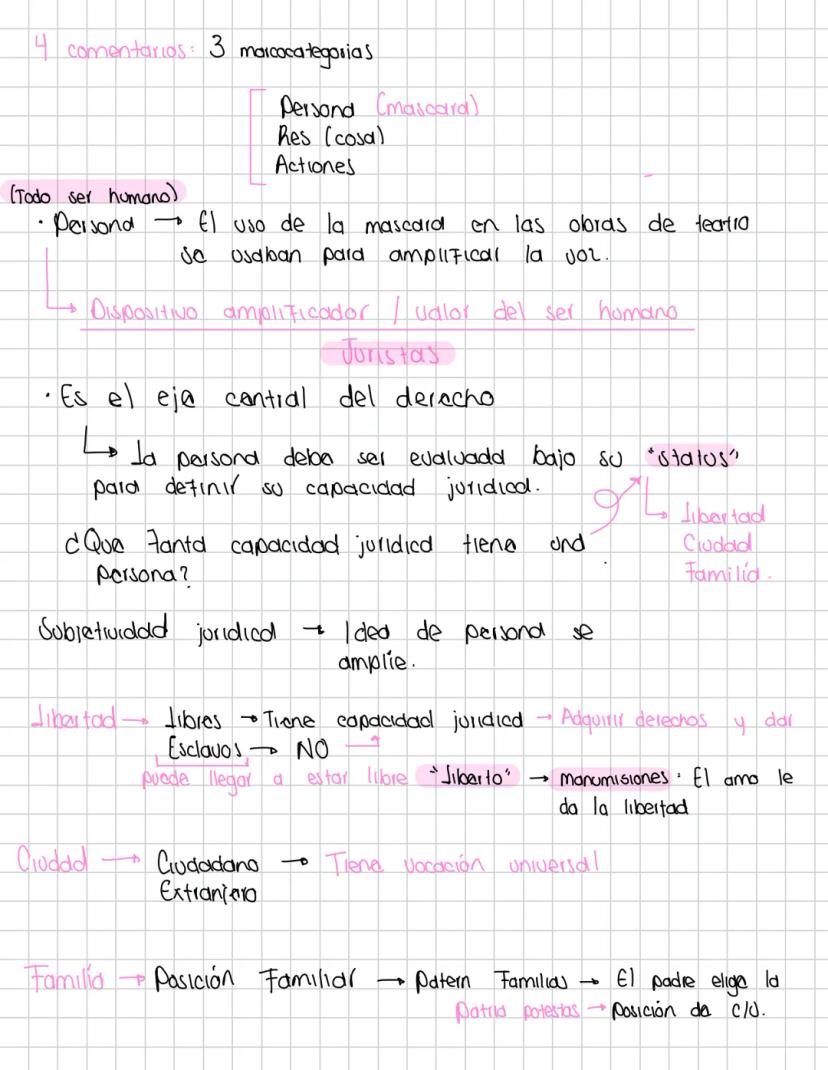 4 comentarios: 3 marcocategorias
Persona (mascara)
Res (cosa)
Actiones
(Todo ser humano)
· Persona → El uso de la mascara en las obras de teatro
se usaban para amplificar la voz.
↳ Dispositivo amplificador / valor del ser humano
Juristas
· Es el eje central del derecho
↳ la persona debe ser evaluada bajo su "status"
para definir su capacidad juridica.
↳ libertad
¿Que tanta capacidad juridica tiene una
Ciudad
persona?
Familia.
Subjetividad juridica → Idea de persona se
amplie.
Libertad → libres → Tiene capacidad juridica → Adquirir derechos y dar
Esclavos → NO
puede llegar a estar libre "liberto" → manumisiones: El amo le
da la libertad
Ciudad → Ciudadano → Tiene vocación universal
Extranjero
Familia → Posición Familiar → Patern Familias → El padre elige la
Patria potestas → posición de c/u.